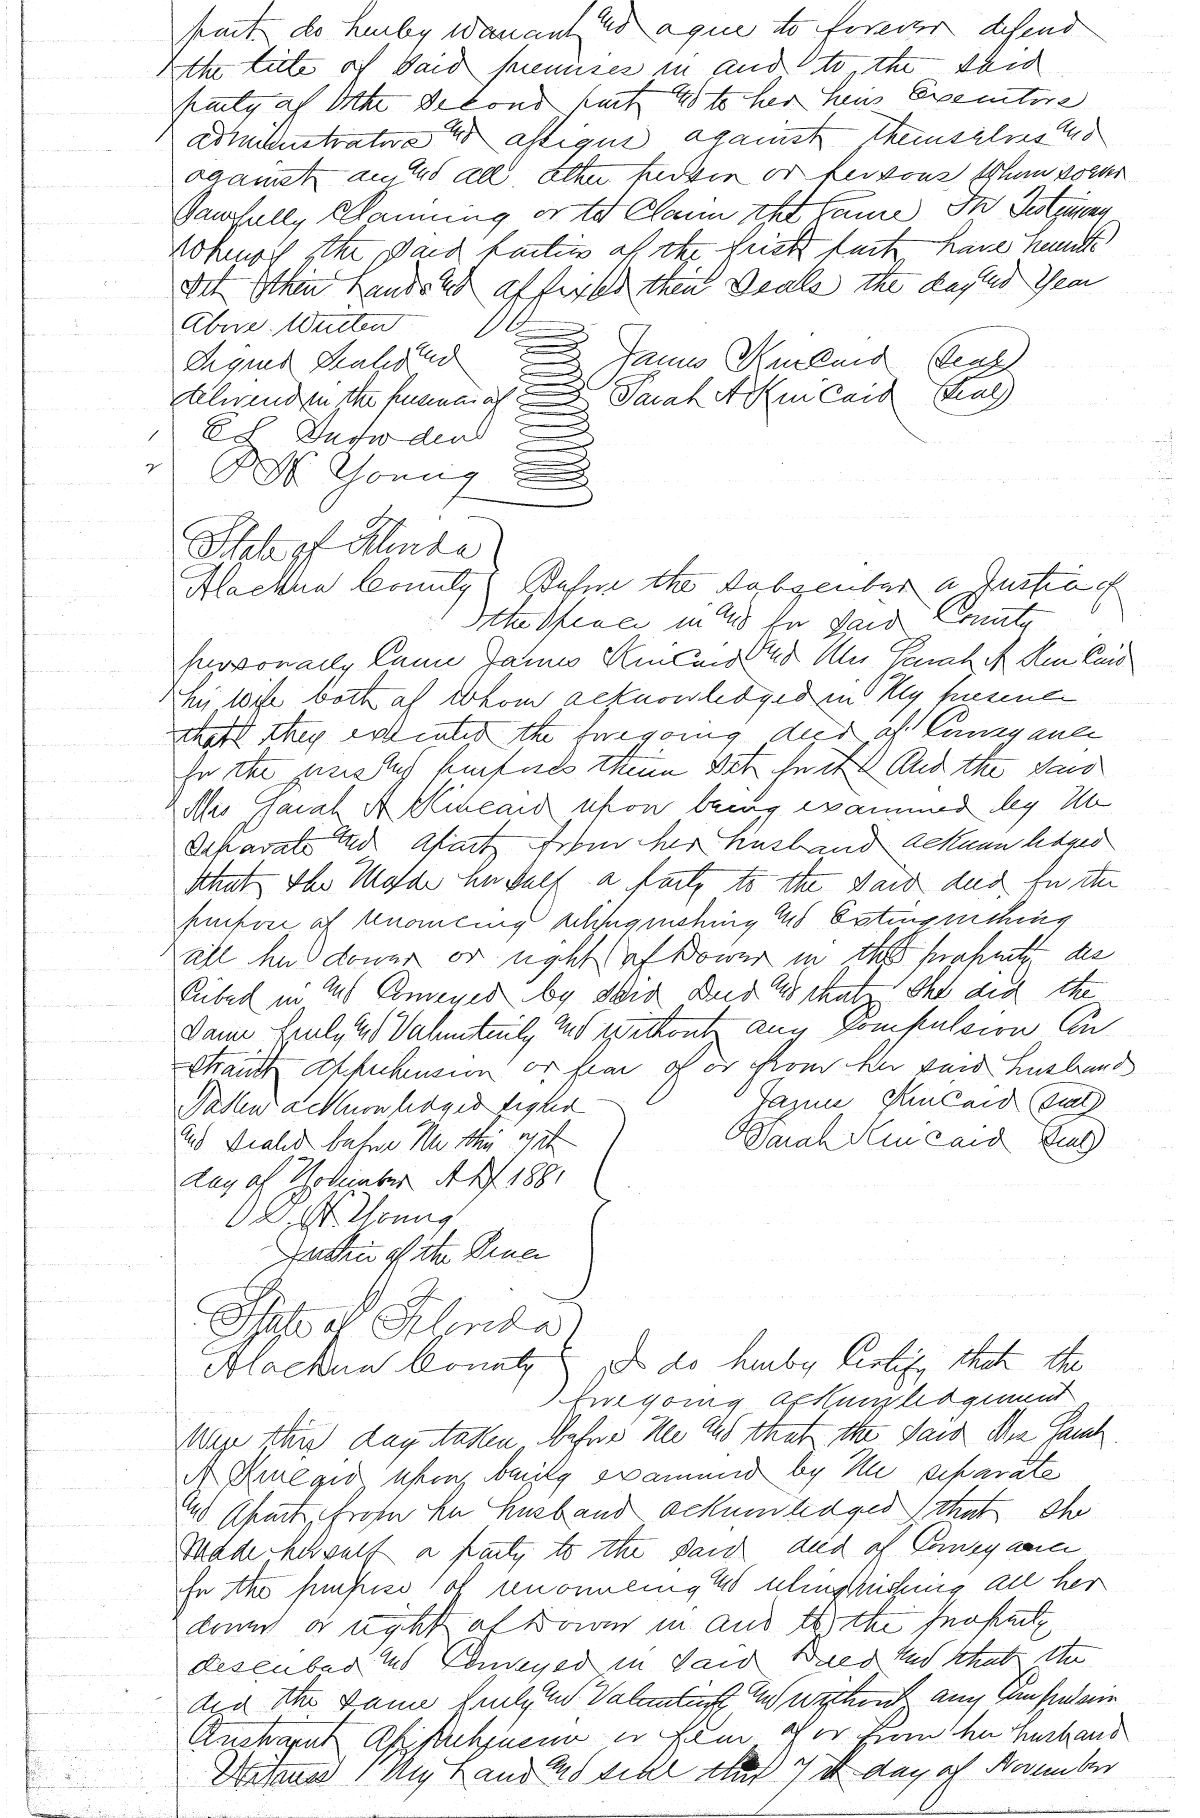 part do hereby warrant and agree to forever defend
the title of said premises in and to the said
party of the second part and to her heirs Executors
administrators and assigns against themselves and
against any and all other person or persons whomsoever
Lawfully Claiming or to Claim the Same In Testimony
Whereof the said parties of the first part have hereunto
set their hands and affixed their Seals the day and Year
Above Written
Signed Sealed and James Kincaid (Seal)
delivered in the presence of Sarah A Kincaid (Seal)
1 Snowden
2 Young
State of Florida
Alachua County Before the Subscriber a Justice of
the Peace in and for said County
personally Came James Kincaid and Mrs Sarah A Kincaid
his wife both of whom acknowledged in My presence
that they executed the foregoing deed of Conveyance
for the uses and purposes therein set forth And the said
Mrs Sarah A Kincaid upon being examined by Me
Separate and Apart from her husband acknowledged
that she Made herself a party to the said deed for the
purpose of renouncing relinquishing and Extinguishing
all her dower or right of Dower in the property des
cribed in and Conveyed by said Deed and that She did the
same freely and Voluntarily and without any Compulsion Con
straint apprehension or fear of or from her said husband
Taken acknowledged signed James Kincaid (Seal)
and sealed before Me this 7th Sarah Kincaid (Seal)
day of November AD 1881
Young
Justice of the Peace
State of Florida
Alachua County I do hereby Certify that the
foregoing acknowledgement
Was this day taken before Me and that the said Mrs Sarah
A Kincaid upon being examined by Me separate
and Apart from her husband acknowledged that she
Made herself a party to the said deed of Conveyance
for the purpose of renouncing and relinquishing all her
dower or right of Dower in and to the property
described and Conveyed in said Deed and that she
did the same freely and Voluntarily and without any Compulsion
Constraint Apprehension or fear of or from her husband
Witness My hand and seal this 7th day of November